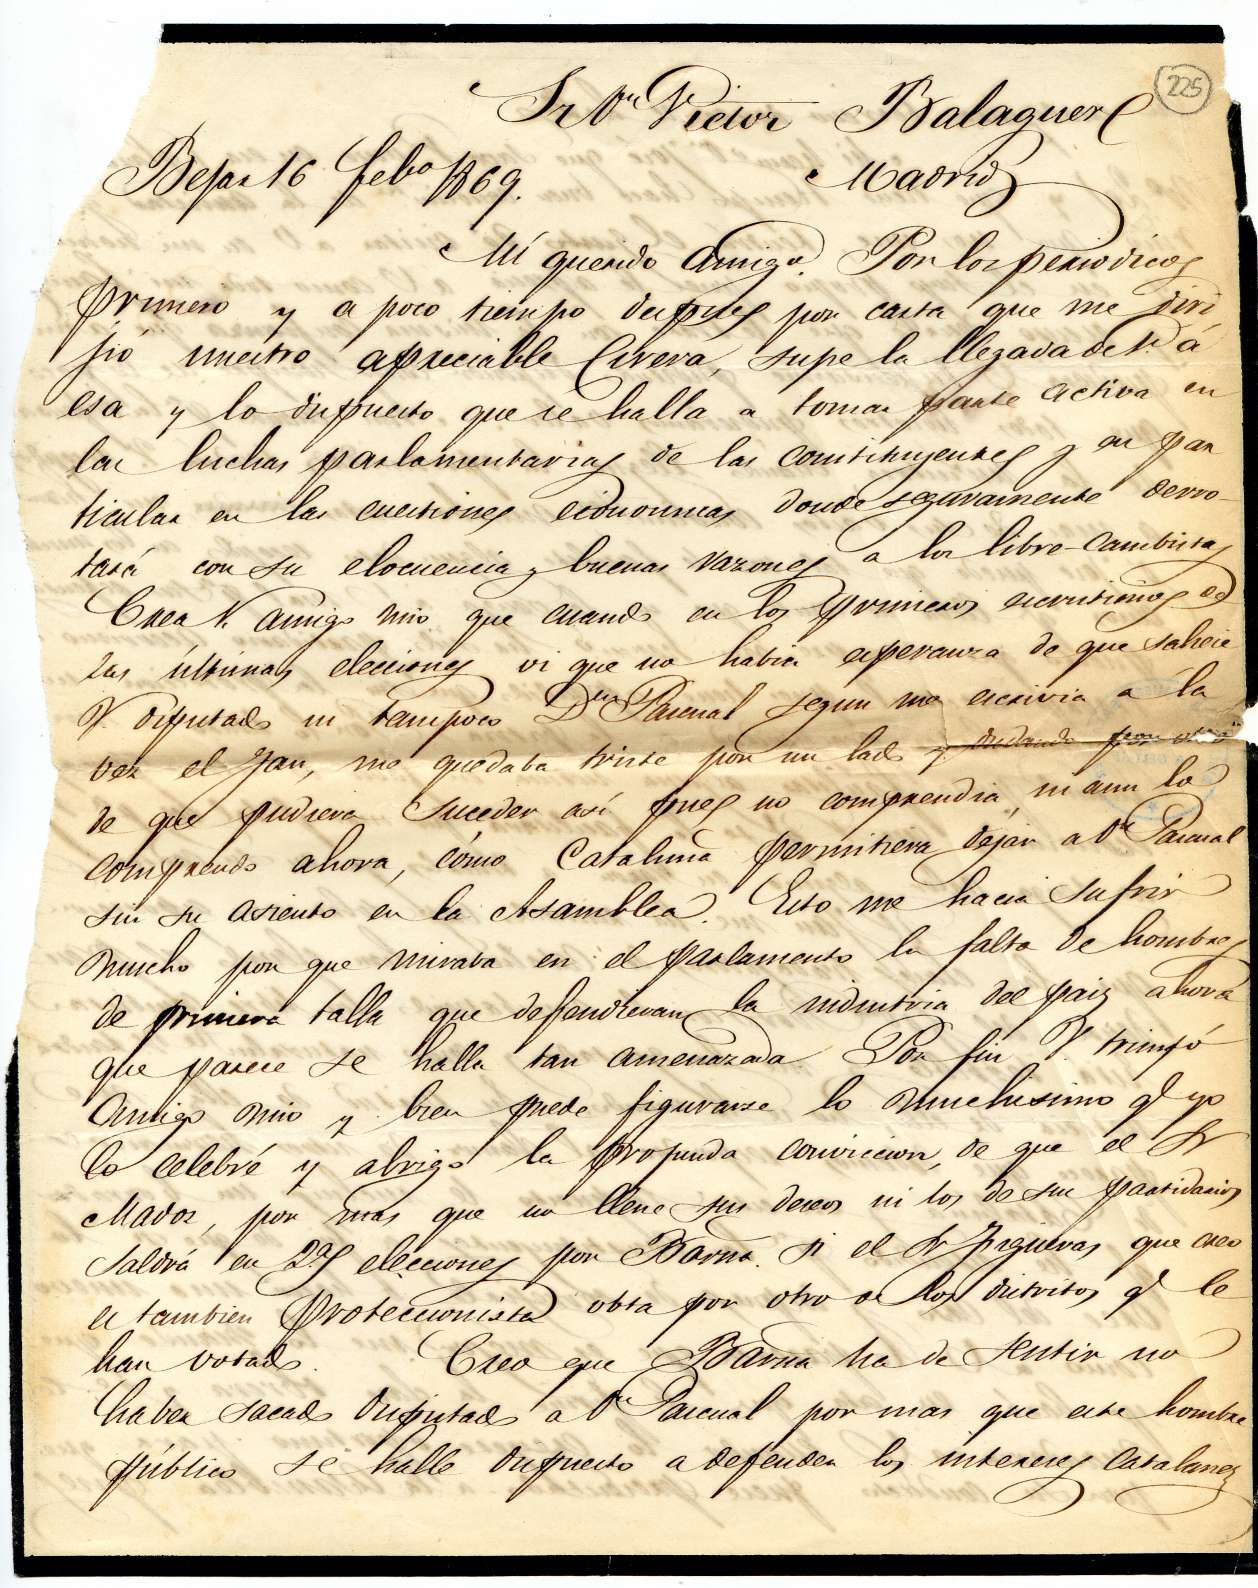 225
Sr Dn Victor Balaguer
Bejar 16 febo 1869. Madrid
Mi querido amigo. Por los periodicos
primero y a poco tiempo despues por carta que me diri
jió nuestro apreciable Cirera, supe la llegada de V. á
esa y lo dispuesto que se halla a tomar parte activa en
las luchas parlamentarias de las constituyentes y en par
ticular en las cuestiones economicas donde seguramente derro-
tará con su elocuencia y buenas razones a los libre-cambistas
Crea V. amigo mio que cuando en los primeros escrutinios de
las últimas elecciones vi que no habia esperanza de que saliese
V. diputado ni tampoco Dn Pascual segun me escrivia a la
vez el Jan, me quedaba triste por un lado y dudando por otro
de que pudiera suceder así pues no comprendia, ni aun lo
comprendo ahora, cómo Cataluña permitiera dejar a Dn Pascual
sin su asiento en la Asamblea. Esto me hacia sufrir
mucho por que miraba en el parlamento la falta de hombres
de primera talla que defendieran la industria del pais ahora
que parece se halla tan amenazada. Por fin V. triunfó
amigo mio y bien puede figurarse lo muchisimo q. yo
lo celebré y abrigo la profunda conviccion, de que el Sr
Madoz, por mas que no llene sus deseos ni los de sus partidarios
saldrá en 2as elecciones por Barna. si el Sr Figueras, que creo
es tambien proteccionista obta por otro de los distritos q. le
han votado. Creo que Barna ha de sentir no
haber sacado diputado a Dn Pascual por mas que este hombre
público se halle dispuesto a defender los intereses catalanes